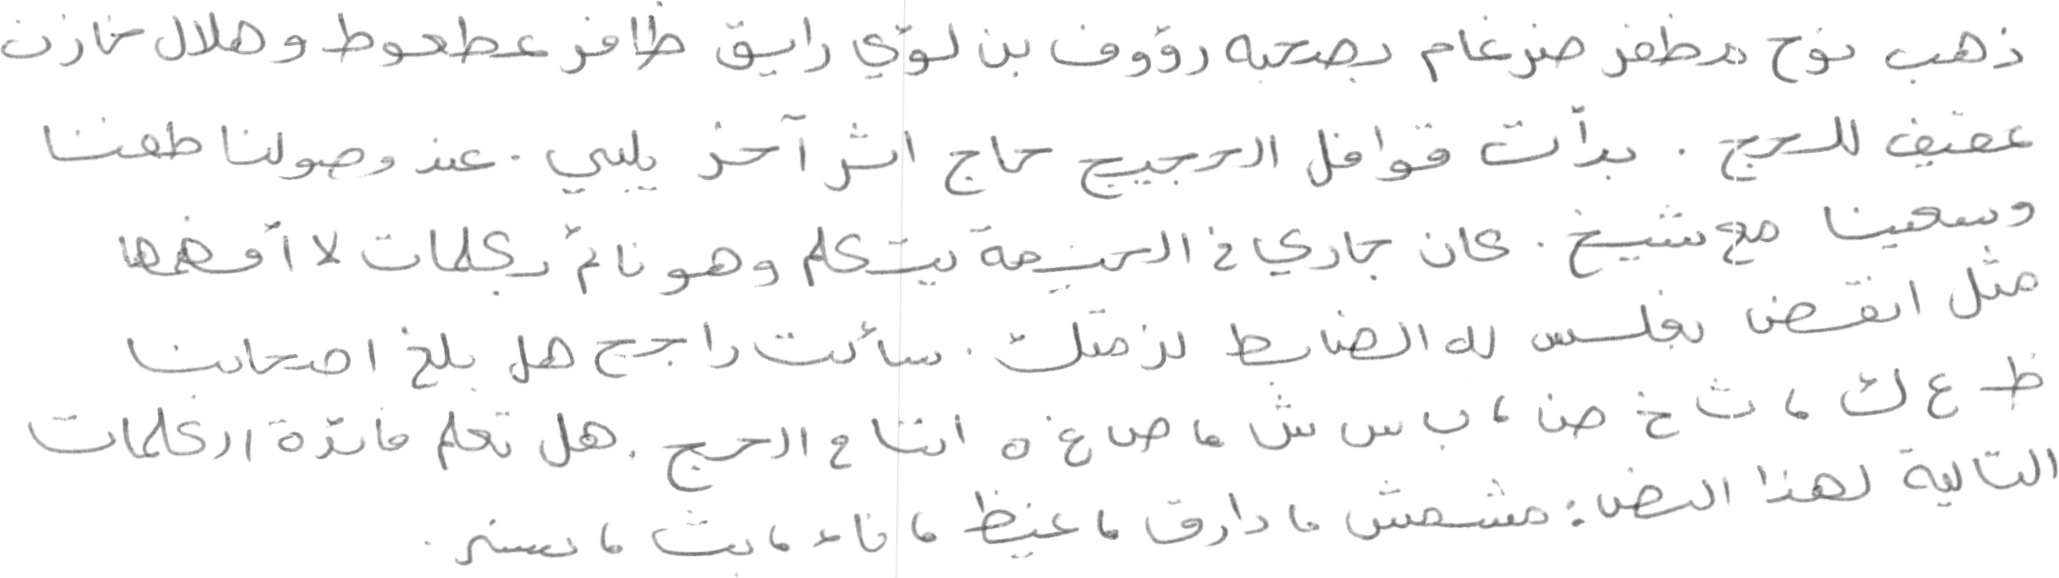 ذهب نوح مظفر ضرغام بصحبه رؤوف بن لؤي رايق ظافر عطعوط و هلال خازن
عفيف للحج . بدأت قوافل الحجيج حاج اثر آخر يلبي . عند وصولنا طفنا
وسعينا مع شيخ . كان جاري في الخيمة يتكلم وهو نائم بكلمات لا أفهمها
مثل انقض بغلس له الضابط لزمتك . سألت راجح هل بلغ اصحابنا
ظ ع ك ، ث خ ض ، ب س ش ، ص غ ه اثناء الحج . هل تعلم فائدة الكلمات
التالية لهذا النص : مشمش ، دارق ، غيظ ، ناء ، بث ،